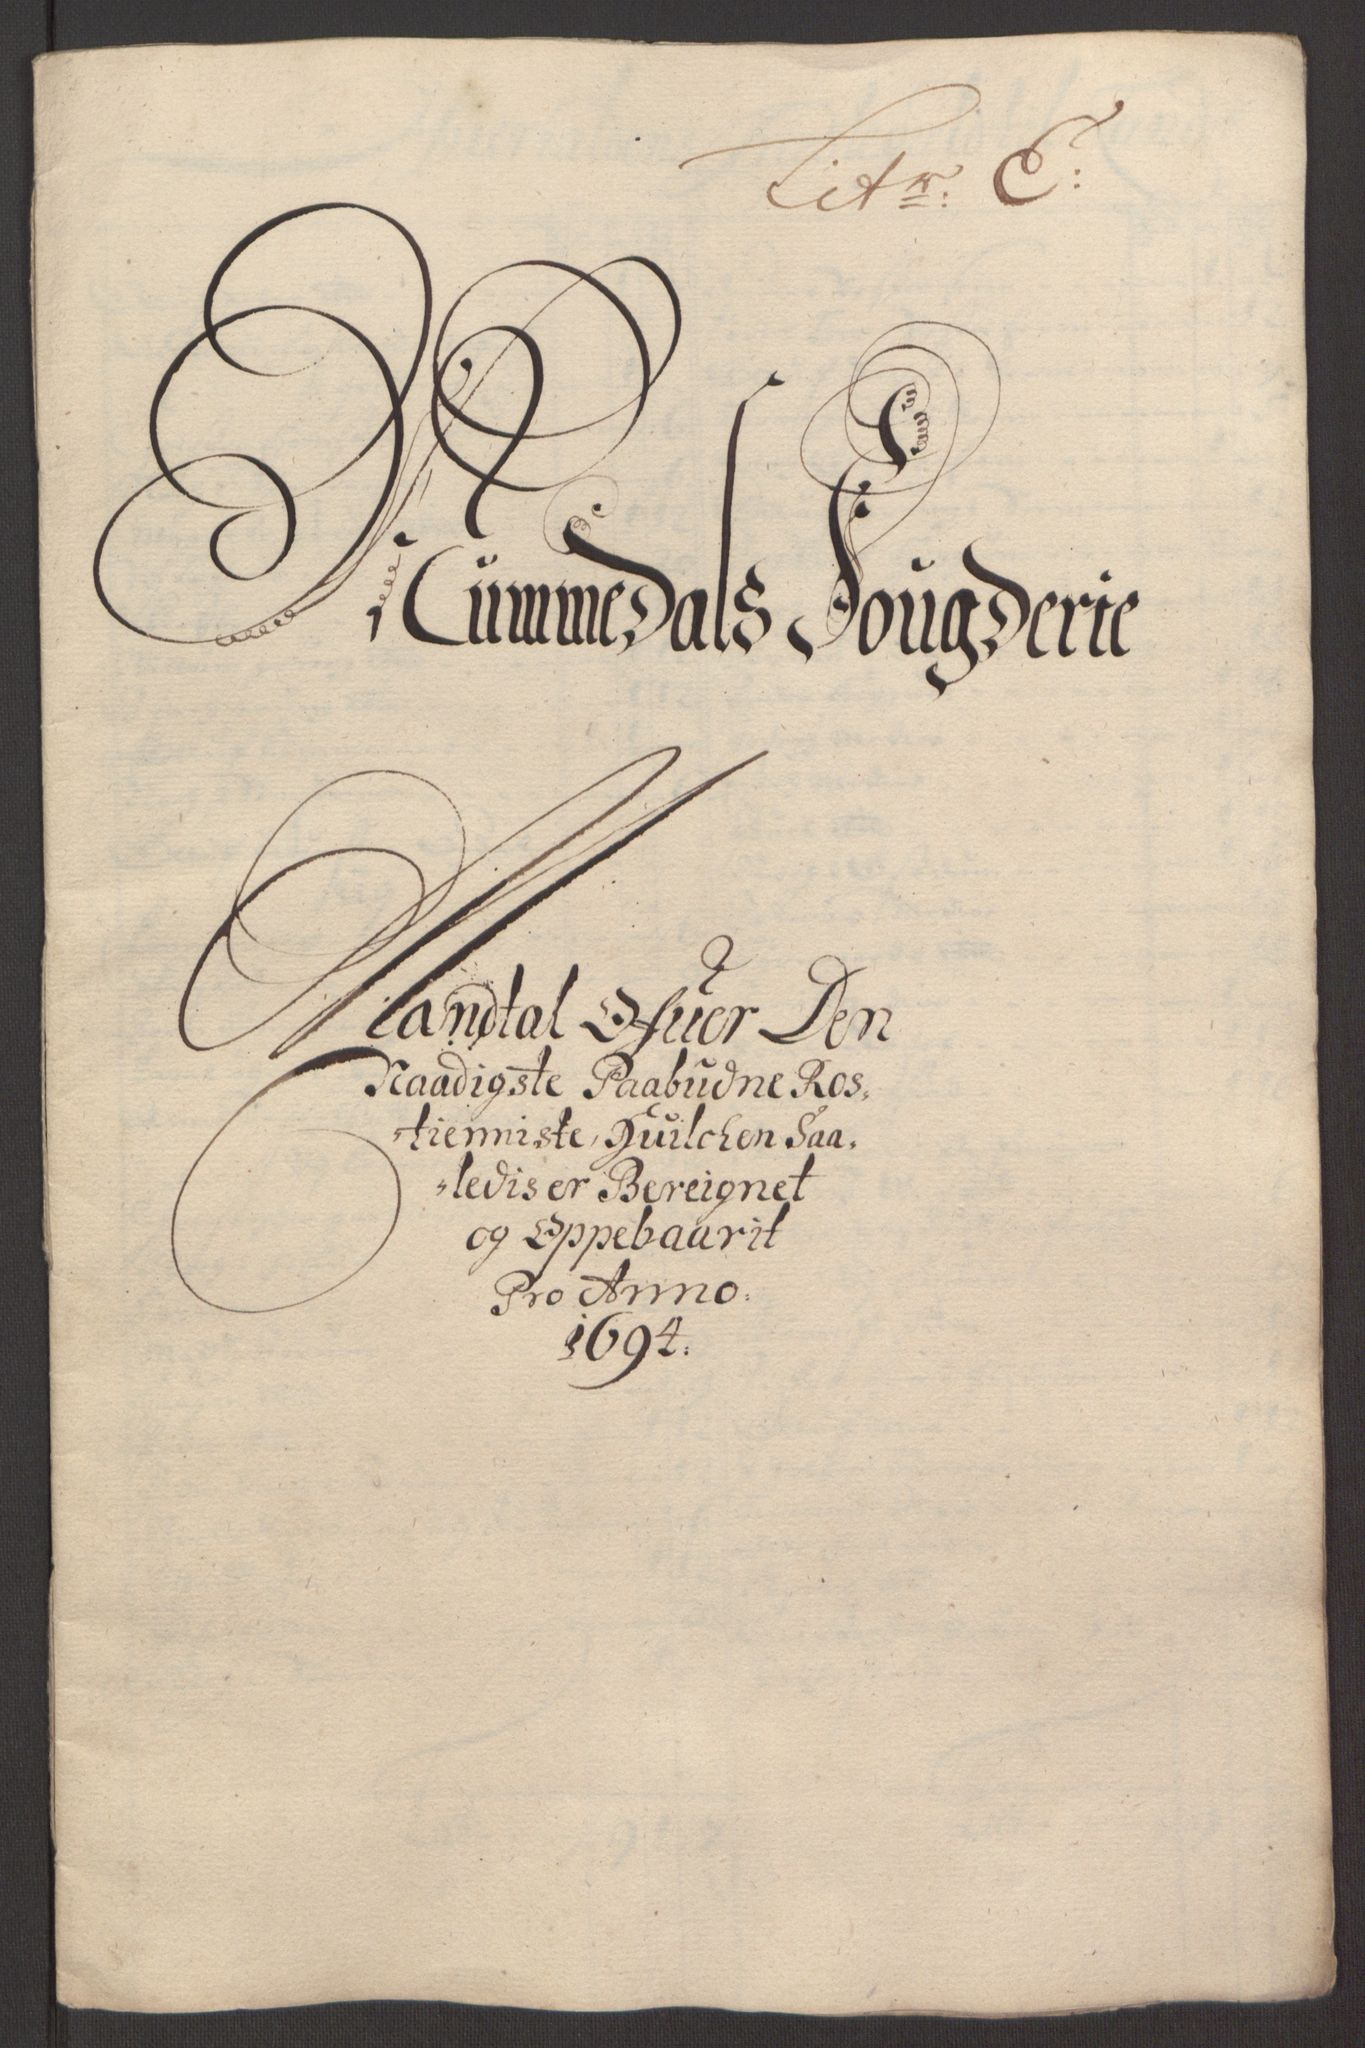 Litr. E:
Nummedals Fougderie
Mandtal Ofuer Den
Naadigste Paabudne Ros-
-tienniste, Huilchen Saa-
-ledis er Bereignet
og Oppebaarit
Pro Anno.
1694.